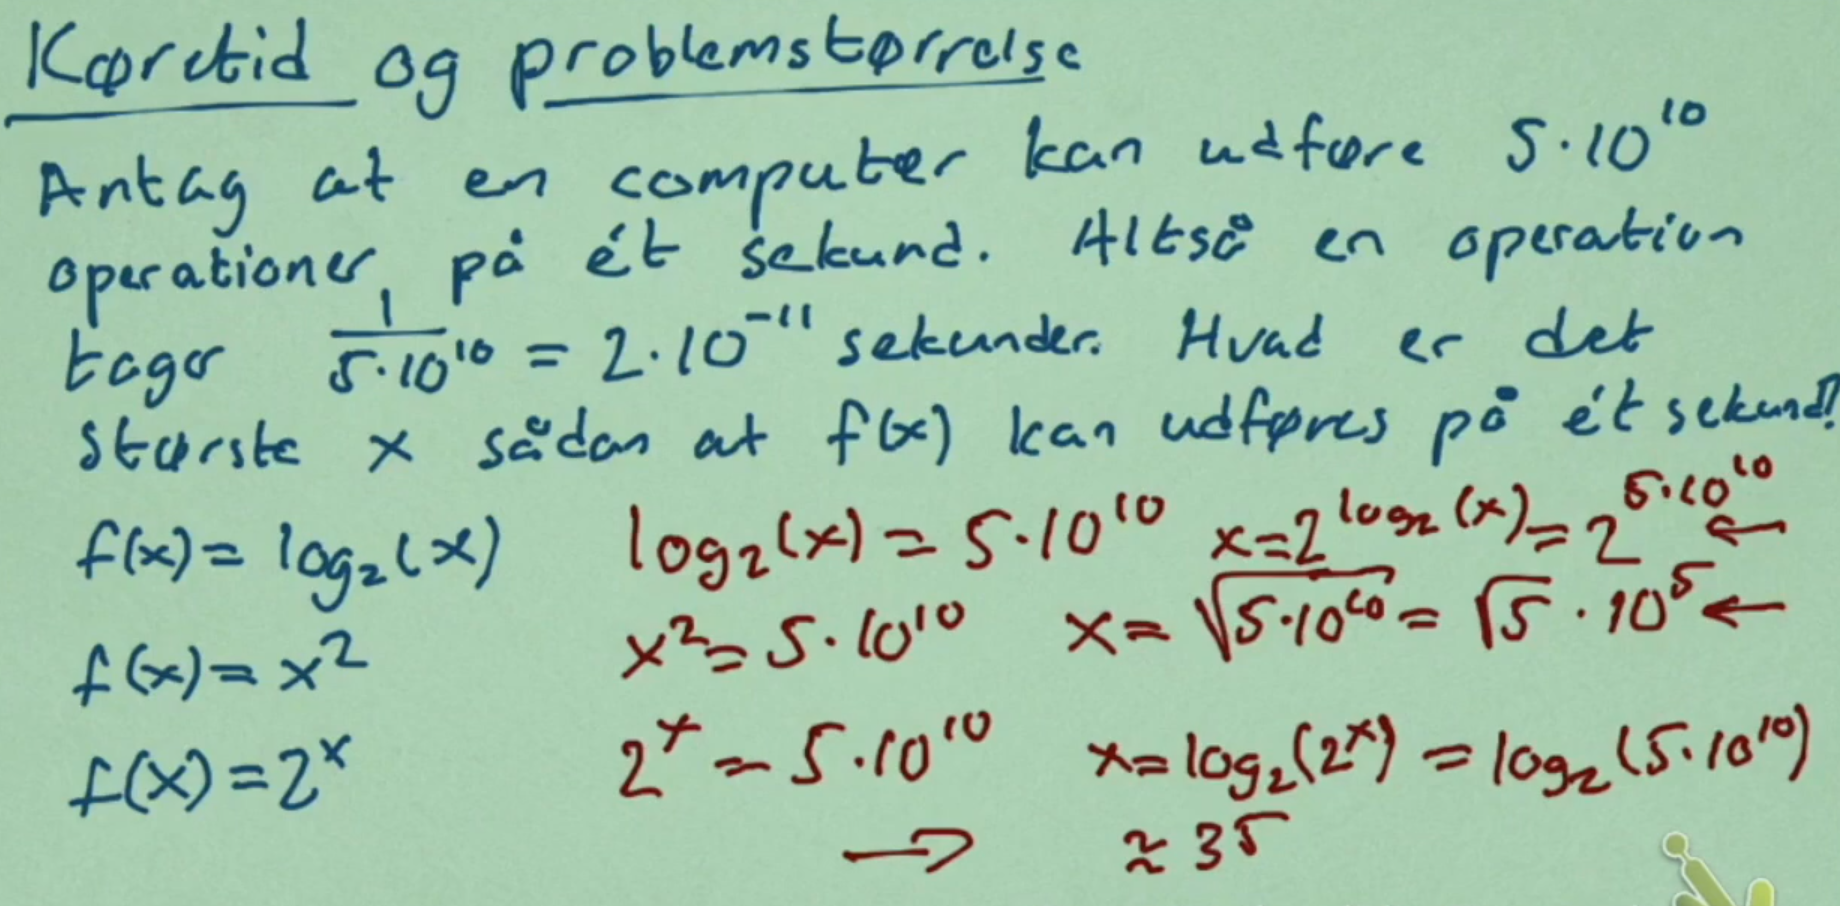 Køretid og problemstørrelse
Antag at en computer kan udføre 5·10¹⁰
operationer på ét sekund. Altså en operation
tager 1/(5·10¹⁰) = 2·10⁻¹¹ sekunder. Hvad er det
største x sådan at f(x) kan udføres på ét sekund?
f(x) = log₂(x) log₂(x) = 5·10¹⁰ x = 2^(log₂(x)) = 2^(5·10¹⁰) ←
f(x) = x² x² = 5·10¹⁰ x = √(5·10¹⁰) = √5 · 10⁵ ←
f(x) = 2ˣ 2ˣ = 5·10¹⁰ x = log₂(2ˣ) = log₂(5·10¹⁰)
→ ≈ 35